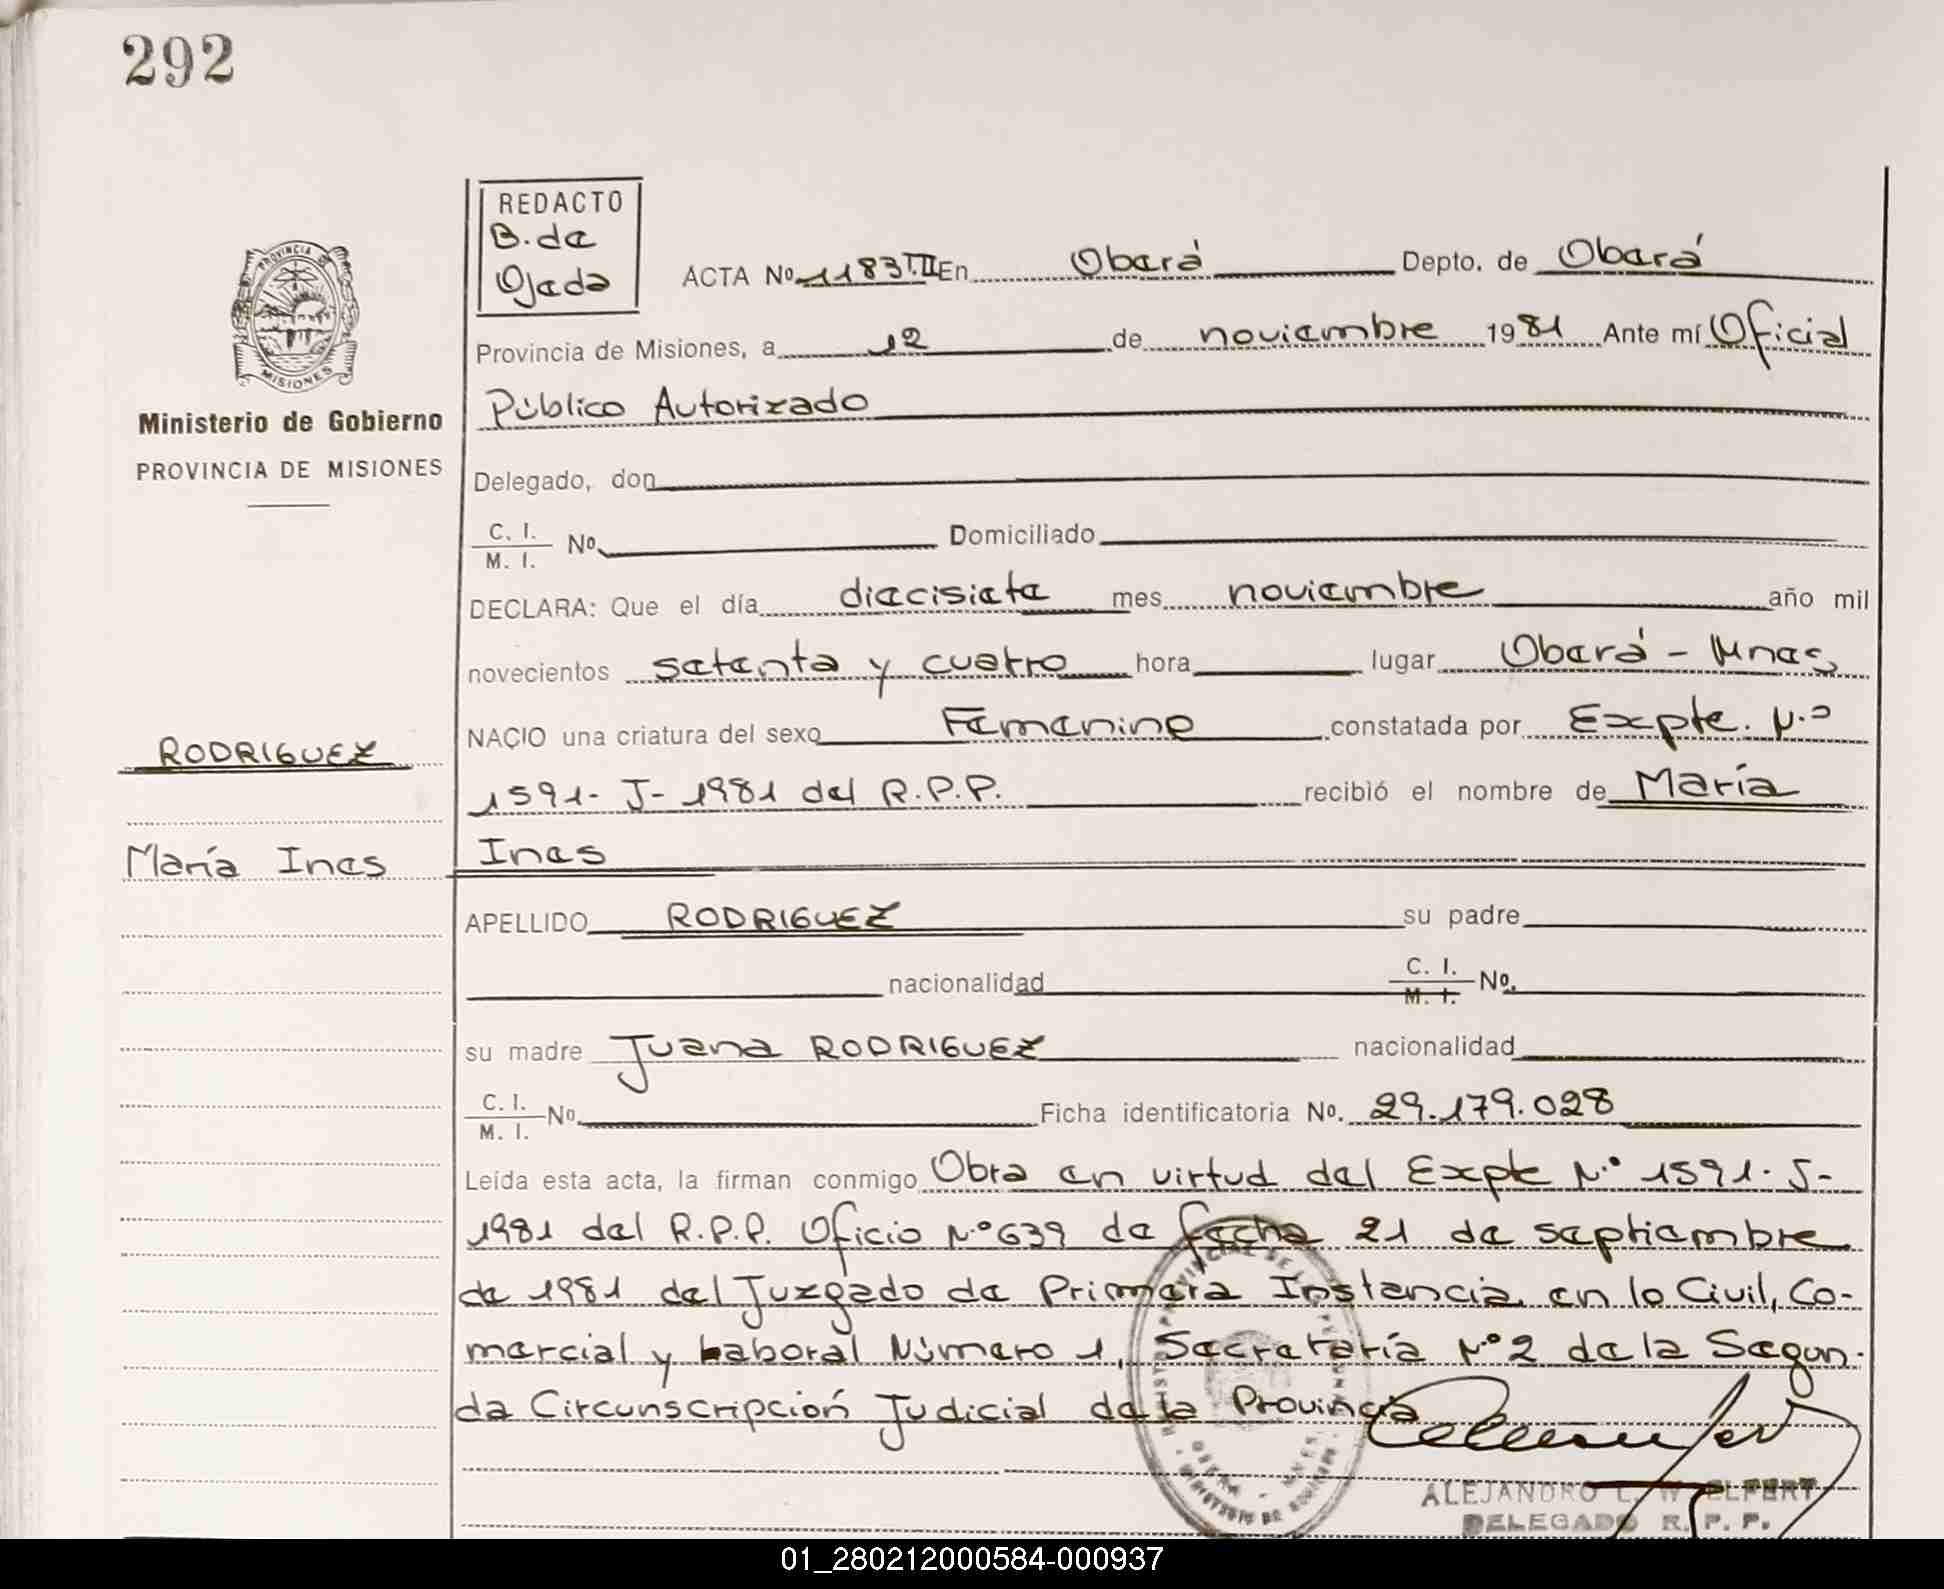 292
REDACTO
B. de
Ojeda
ACTA Nº 1183 T.II En Oberá Depto. de Oberá
Provincia de Misiones, a 12 de noviembre 1981 Ante mí Oficial
Público Autorizado
PROVINCIA DE
MISIONES
Ministerio de Gobierno
PROVINCIA DE MISIONES
Delegado, don
C. I.
M. I. Nº Domiciliado
DECLARA: Que el día diecisiete mes noviembre año mil
novecientos setenta y cuatro hora lugar Oberá - Mnes
NACIO una criatura del sexo Femenino constatada por Expte. N.º
RODRIGUEZ
1591- J- 1981 del R.P.P. recibió el nombre de María
María Ines
Ines
APELLIDO RODRIGUEZ su padre
nacionalidad C. I.
M. I. Nº
su madre Juana RODRIGUEZ nacionalidad
C. I.
M. I. Nº Ficha identificatoria Nº. 29.179.028
Leída esta acta, la firman conmigo Obra en virtud del Expte N.º 1591. J-
1981 del R.P.P. Oficio N.º 639 de fecha 21 de septiembre
de 1981 del Juzgado de Primera Instancia en lo Civil, Co-
mercial y Laboral Número 1, Secretaría N.º 2 de la Segun-
da Circunscripción Judicial de la Provincia
ALEJANDRO
DELEGADO R. P. P.
01_280212000584-000937